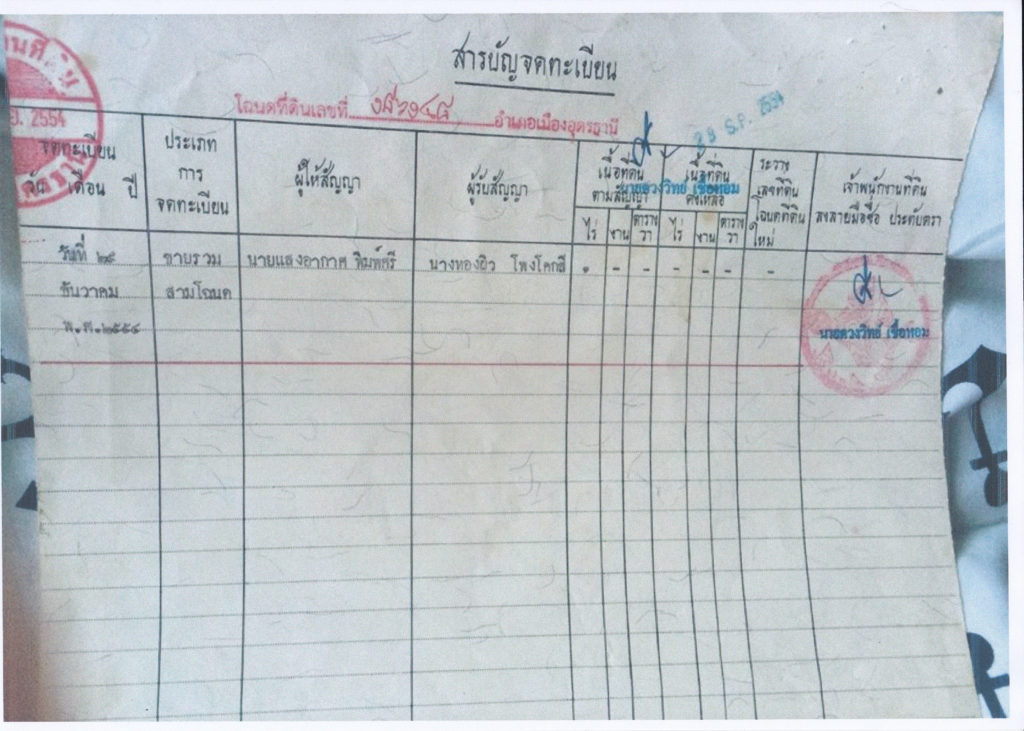 สารบัญจดทะเบียน
โฉนดที่ดินเลขที่ อำเภอเมืองอุดรธานี
2554
จดทะเบียน
วัน เดือน ปี
ประเภท
การ
จดทะเบียน
ผู้ให้สัญญา
ผู้รับสัญญา
เนื้อที่ดิน
ตามสัญญา
ไร่ งาน ตารางวา
เนื้อที่ดิน
คงเหลือ
ไร่ งาน ตารางวา
ระวาง
เลขที่ดิน
โฉนดที่ดิน
ใหม่
เจ้าพนักงานที่ดิน
ลงลายมือชื่อ ประทับตรา
นายดวงวิทย์ เชื้อหอม
วันที่ ๒๙ ขายรวม นายแสงอากาศ พิมพ์ศรี นางทองผิว โพงโคกสี ๑ - - - - - -
ธันวาคม สามโฉนด
พ.ศ.๒๕๕๔
นายดวงวิทย์ เชื้อหอม